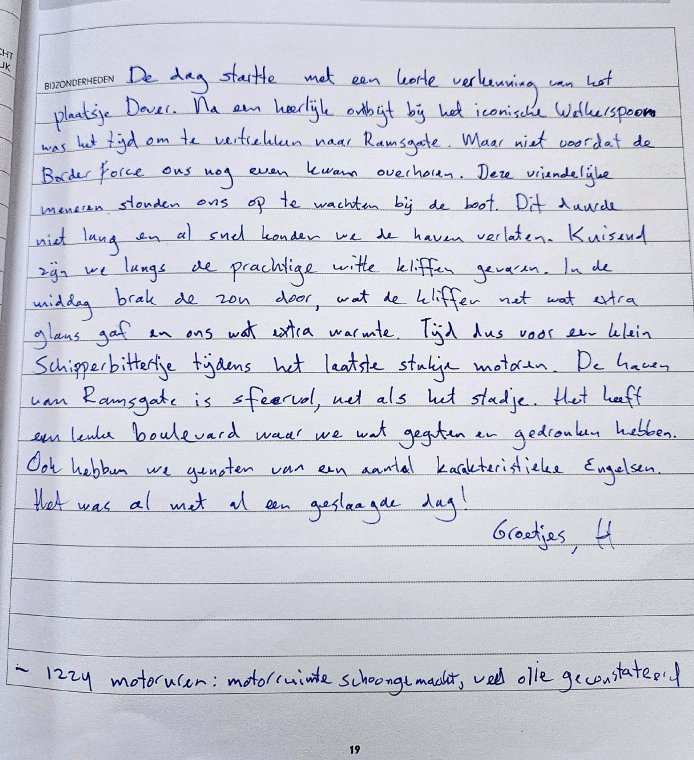 CHT
JK
BIJZONDERHEDEN De dag startte met een korte verkenning van het
plaatsje Dover. Na een heerlijk ontbijt bij het iconische Wetherspoon
was het tijd om te vertrekken naar Ramsgate. Maar niet voordat de
Border Force ons nog even kwam overhoren. Deze vriendelijke
meneren stonden ons op te wachten bij de boot. Dit duurde
niet lang en al snel konden we de haven verlaten. Kuisend
zijn we langs de prachtige witte kliffen gevaren. In de
middag brak de zon door, wat de kliffen net wat extra
glans gaf en ons wat extra warmte. Tijd dus voor een klein
Schipperbittertje tijdens het laatste stukje motoren. De haven
van Ramsgate is sfeervol, net als het stadje. Het heeft
een leuke boulevard waar we wat gegeten en gedronken hebben.
Ook hebben we genoten van een aantal karakteristieke Engelsen.
Het was al met al een geslaagde dag!
Groetjes, H
- 1224 motoruren: motorruimte schoongemaakt, veel olie geconstateerd
19